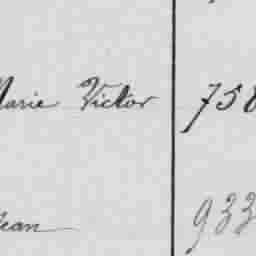 Marie Victor 758
Jean 933